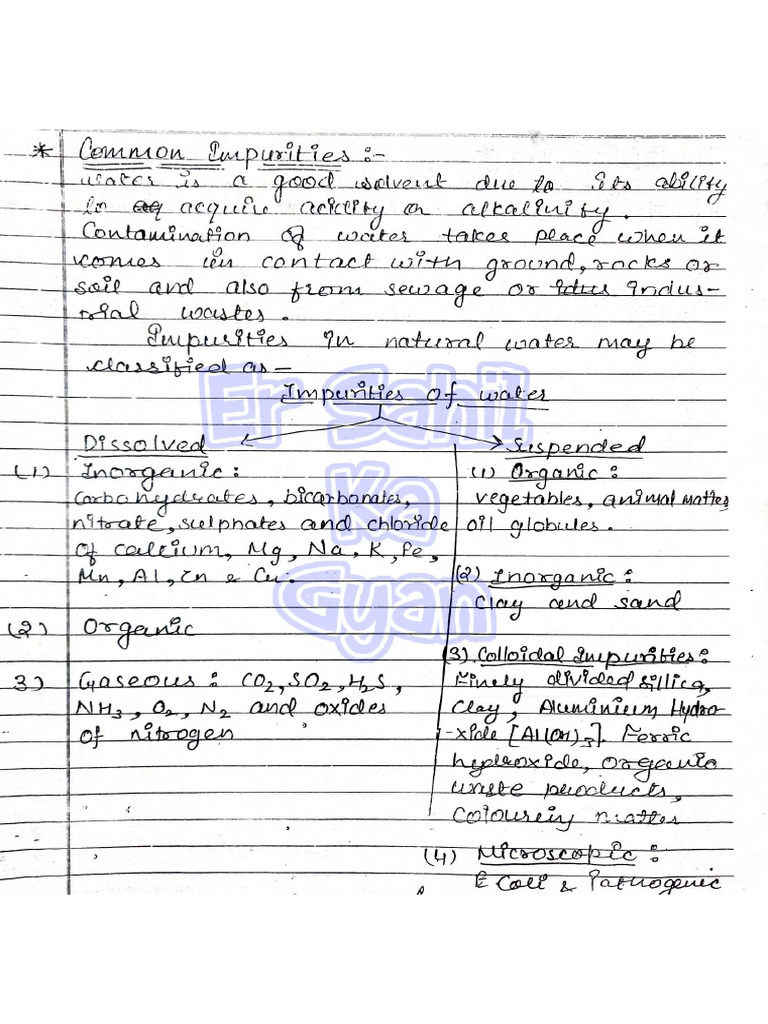 * Common Impurities :-
water is a good solvent due to its ability
to aq acquire acidity or alkalinity.
Contamination of water takes place when it
comes in contact with ground, rocks or
soil and also from sewage or idus indus-
rial wastes.
Impurities in natural water may be
classified as-
Impurities of water
Dissolved
(1) Inorganic :
Carbohydrates, bicarbonates,
nitrate, sulphates and chloride
of calcium, Mg, Na, K, Fe,
Mn, Al, Zn & Cu.
(2) Organic
3) Gaseous : CO2, SO2, H2S,
NH3, O2, N2 and oxides
of nitrogen
Suspended
(1) Organic :
vegetables, animal matter
oil globules.
(2) Inorganic :
Clay and sand
(3) Colloidal Impurities :
Finely divided sillica,
Clay, Aluminium Hydro-
-xide [Al(OH)3]. Ferric
hydroxide, Organic
waste products,
Colourely matter
(4) Microscopic :
E Coli & Pathogenic
Er Sahil
Ka
Gyan